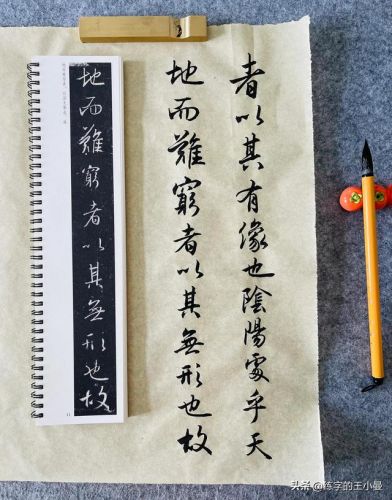 者以其有像也陰陽處乎天
地而難窮者以其無形也故
地而難窮者以其無形也故
11
头条@练字的王小曼